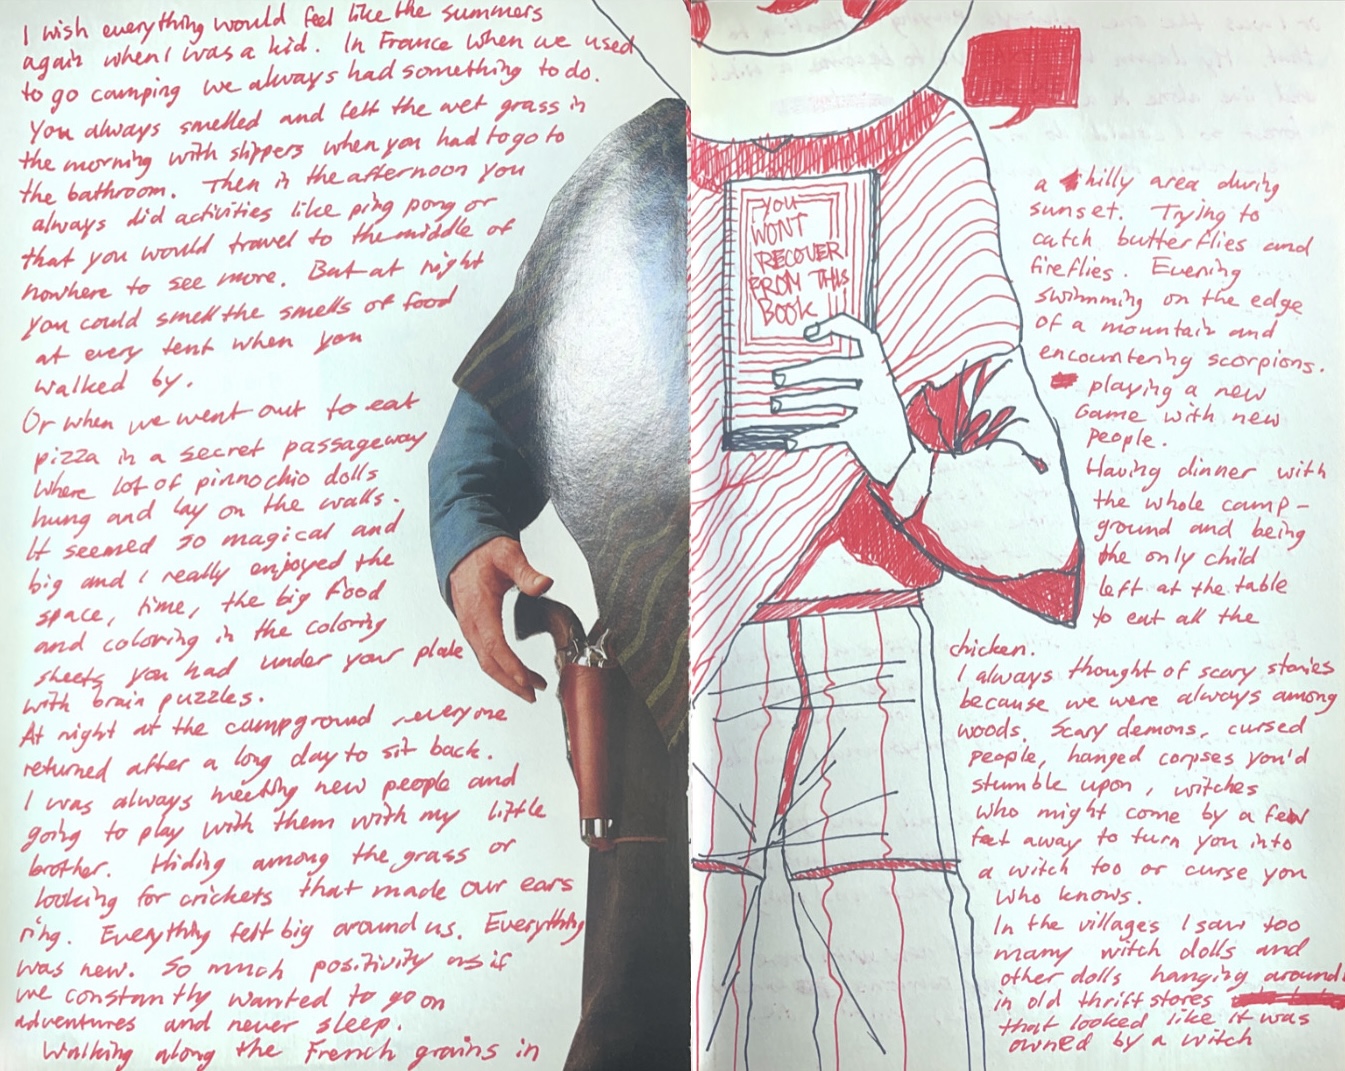 I wish everything would feel like the summers
again when I was a kid. In France when we used
to go camping we always had something to do.
You always smelled and felt the wet grass in
the morning with slippers when you had to go to
the bathroom. Then in the afternoon you
always did activities like ping pong or
that you would travel to the middle of
nowhere to see more. But at night
you could smell the smells of food
at every tent when you
walked by.
Or when we went out to eat
pizza in a secret passageway
where lot of pinnochio dolls
hung and lay on the walls.
It seemed so magical and
big and I really enjoyed the
space, time, the big food
and coloring in the coloring
sheets you had under your plate
with brain puzzles.
At night at the campground everyone
returned after a long day to sit back.
I was always meeting new people and
going to play with them with my little
brother. Hiding among the grass or
looking for crickets that made our ears
ring. Everything felt big around us. Everything
was new. So much positivity as if
we constantly wanted to go on
adventures and never sleep.
Walking along the French grains in
YOU
WONT
RECOVER
FROM THIS
BOOK !!!
a hilly area during
sunset. Trying to
catch butterflies and
fireflies. Evening
swimming on the edge
of a mountain and
encountering scorpions.
playing a new
Game with new
people.
Having dinner with
the whole camp-
ground and being
the only child
left at the table
to eat all the
chicken.
I always thought of scary stories
because we were always among
woods. Scary demons, cursed
people, hanged corpses you'd
stumble upon, witches
who might come by a few
feet away to turn you into
a witch too or curse you
who knows.
In the villages I saw too
many witch dolls and
other dolls hanging around
in old thrift stores
that looked like it was
owned by a witch